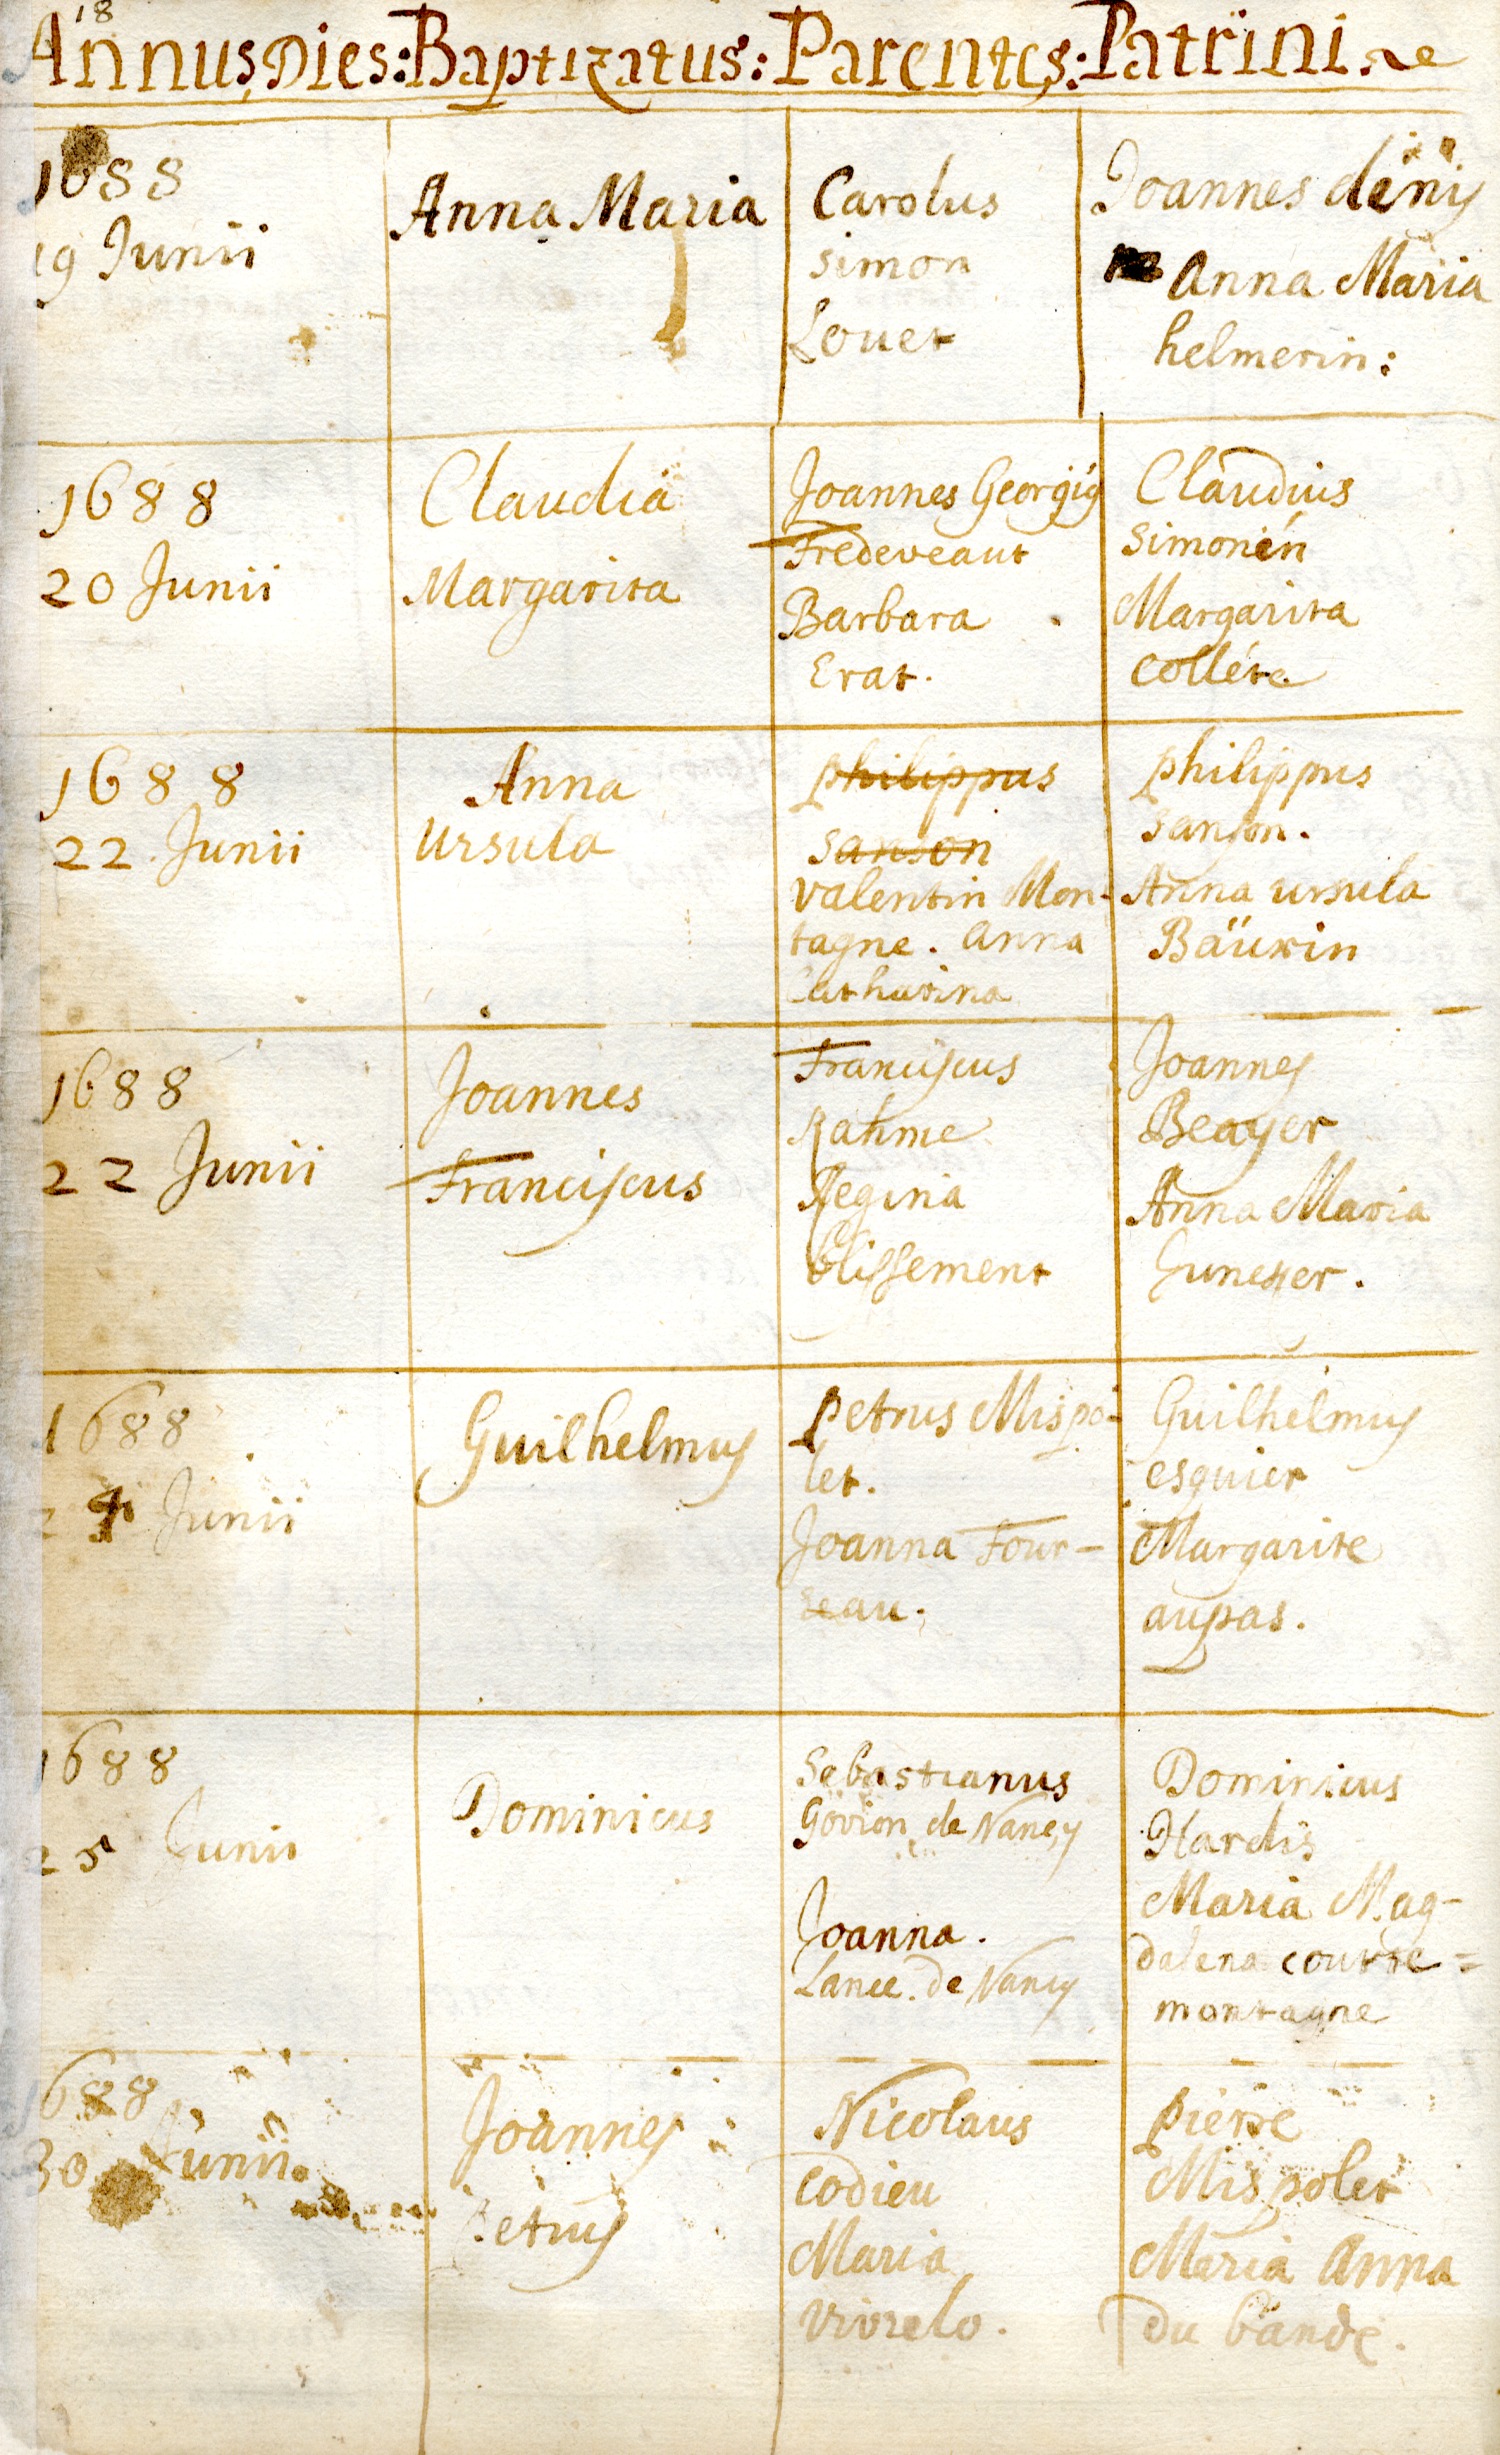 18
Annus, Dies: Baptizatus: Parentes: Patrini
1688
19 Junii
Anna Maria
Carolus
simon
Louet
Joannes denÿ
Anna Maria
helmerin:
1688
20 Junii
Claudia
Margarita
Joannes Georgiɡ
Fredeveaut
Barbara
Erat.
Claudius
Simonén
Margarita
colléte
1688
22 Junii
Anna
Ursula
philippus
sanson
valentin Mon-
tagne. anna
Catharina
philippus
sanson.
Anna ursula
Bäurin
1688
22 Junii
Joannes
Franciscus
Franciscus
Rahme
Regina
blissement
Joannes
Beayer
Anna Maria
1688
Junii
Guilhelmus
petrus Mispo-
let.
Joanna Four-
Guilhelmus
esquier
Margarite
aupas.
1688
25 Junii
Dominicus
Sebastianus
Govion de Nancy
Joanna.
Lance. de Nancy
Dominicus
Hardis
Maria Mag-
dalena courte=
montagne
1688
30 Junii.
Joannes
Petrus
Nicolaus
codieu
Maria
vivrelo.
pierre
Mispolet
Maria Anna
du bande.